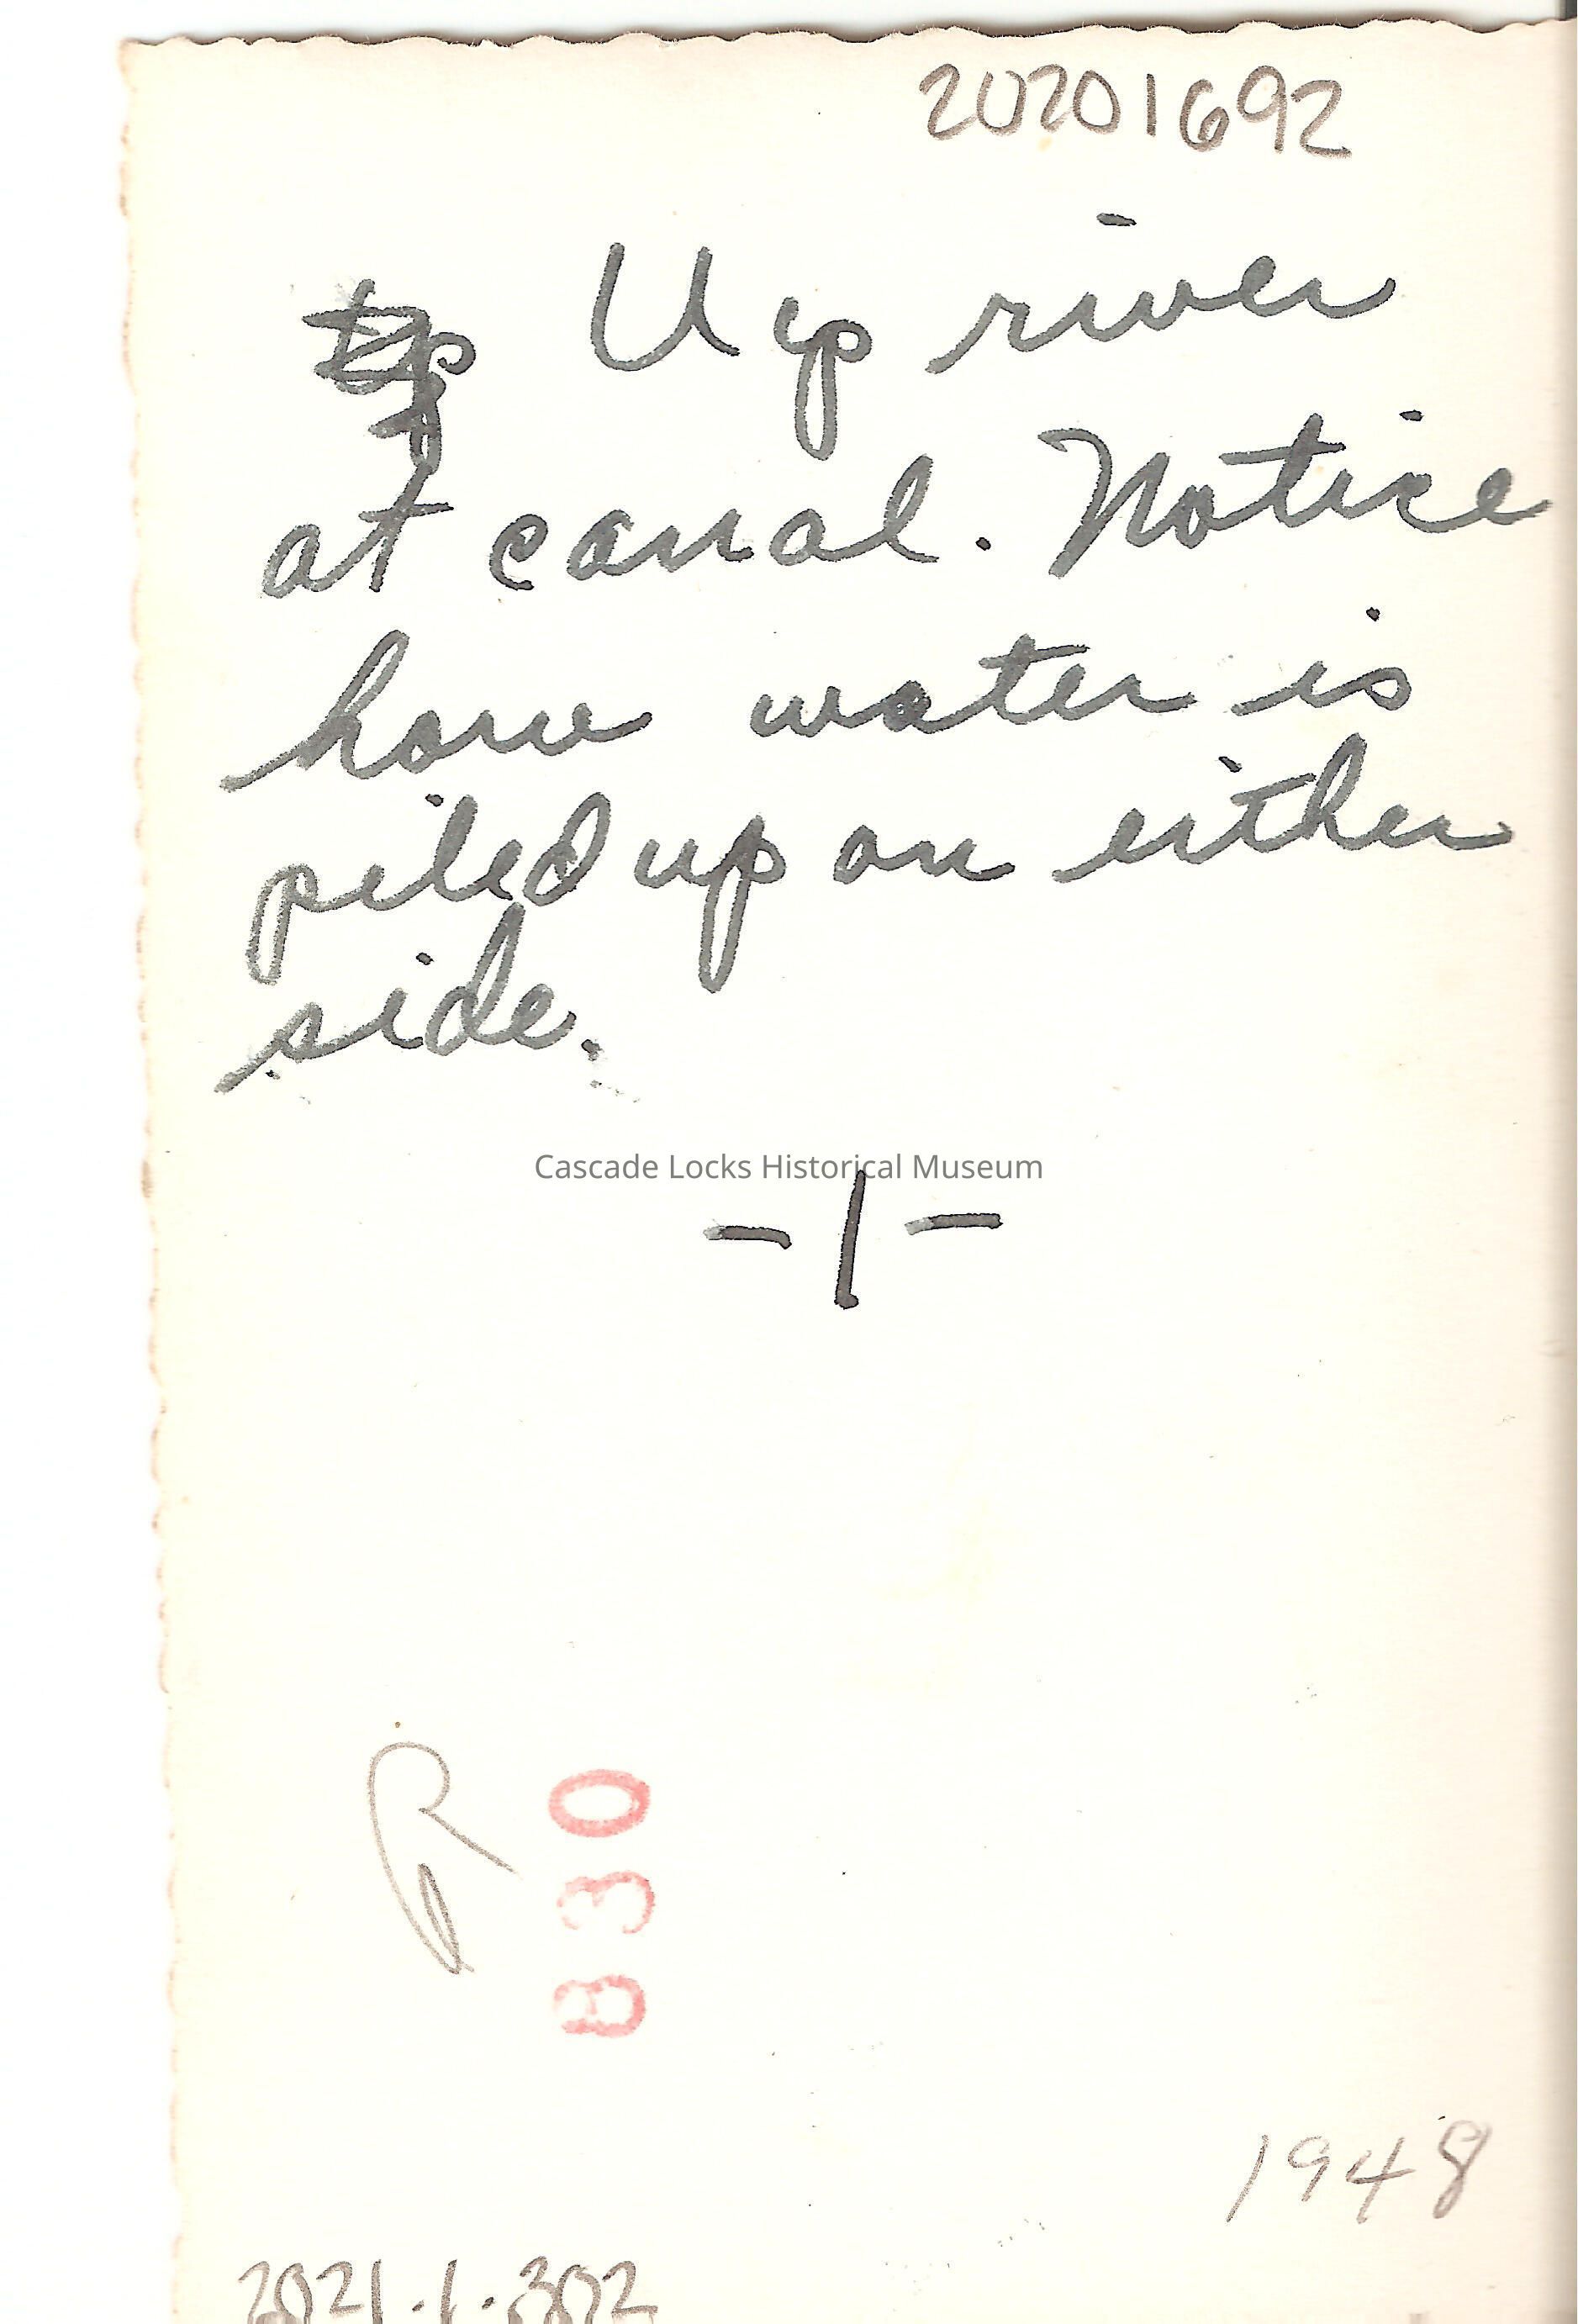 20201692
Up river
at canal. Notice
how water is
piled up on either
side.
Cascade Locks Historical Museum
- 1 -
830
1948
2021.1.302